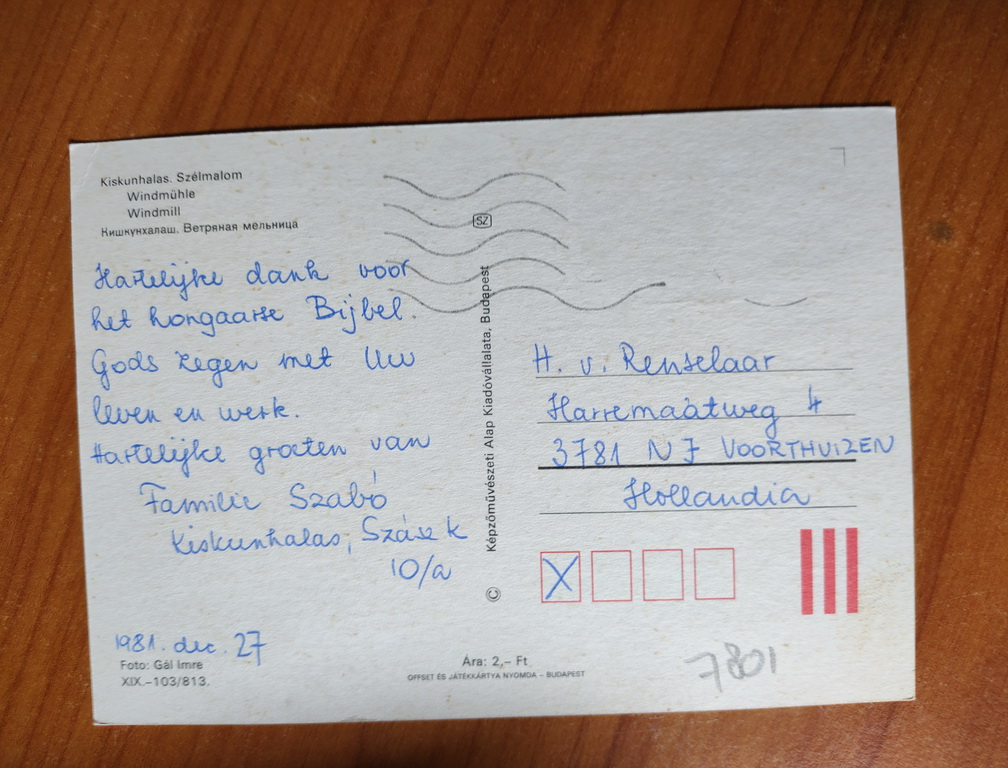 Kiskunhalas. Szélmalom
Windmühle
Windmill
Кишкунхалаш. Ветряная мельница
Hartelijke dank voor
het hongaarse Bijbel.
Gods zegen met Uw
leven en werk.
Hartelijke groeten van
Familie Szabó
Kiskunhalas, Szász k
10/a
1981. dec. 27
Foto: Gál Imre
XIX.–103/813.
SZ
© Képzőművészeti Alap Kiadóvállalata, Budapest
Ára: 2,– Ft
OFFSET ÉS JÁTÉKKÁRTYA NYOMDA – BUDAPEST
H. v. Renselaar
Harremaatweg 4
3781 NJ VOORTHUIZEN
Hollandia
X
7801